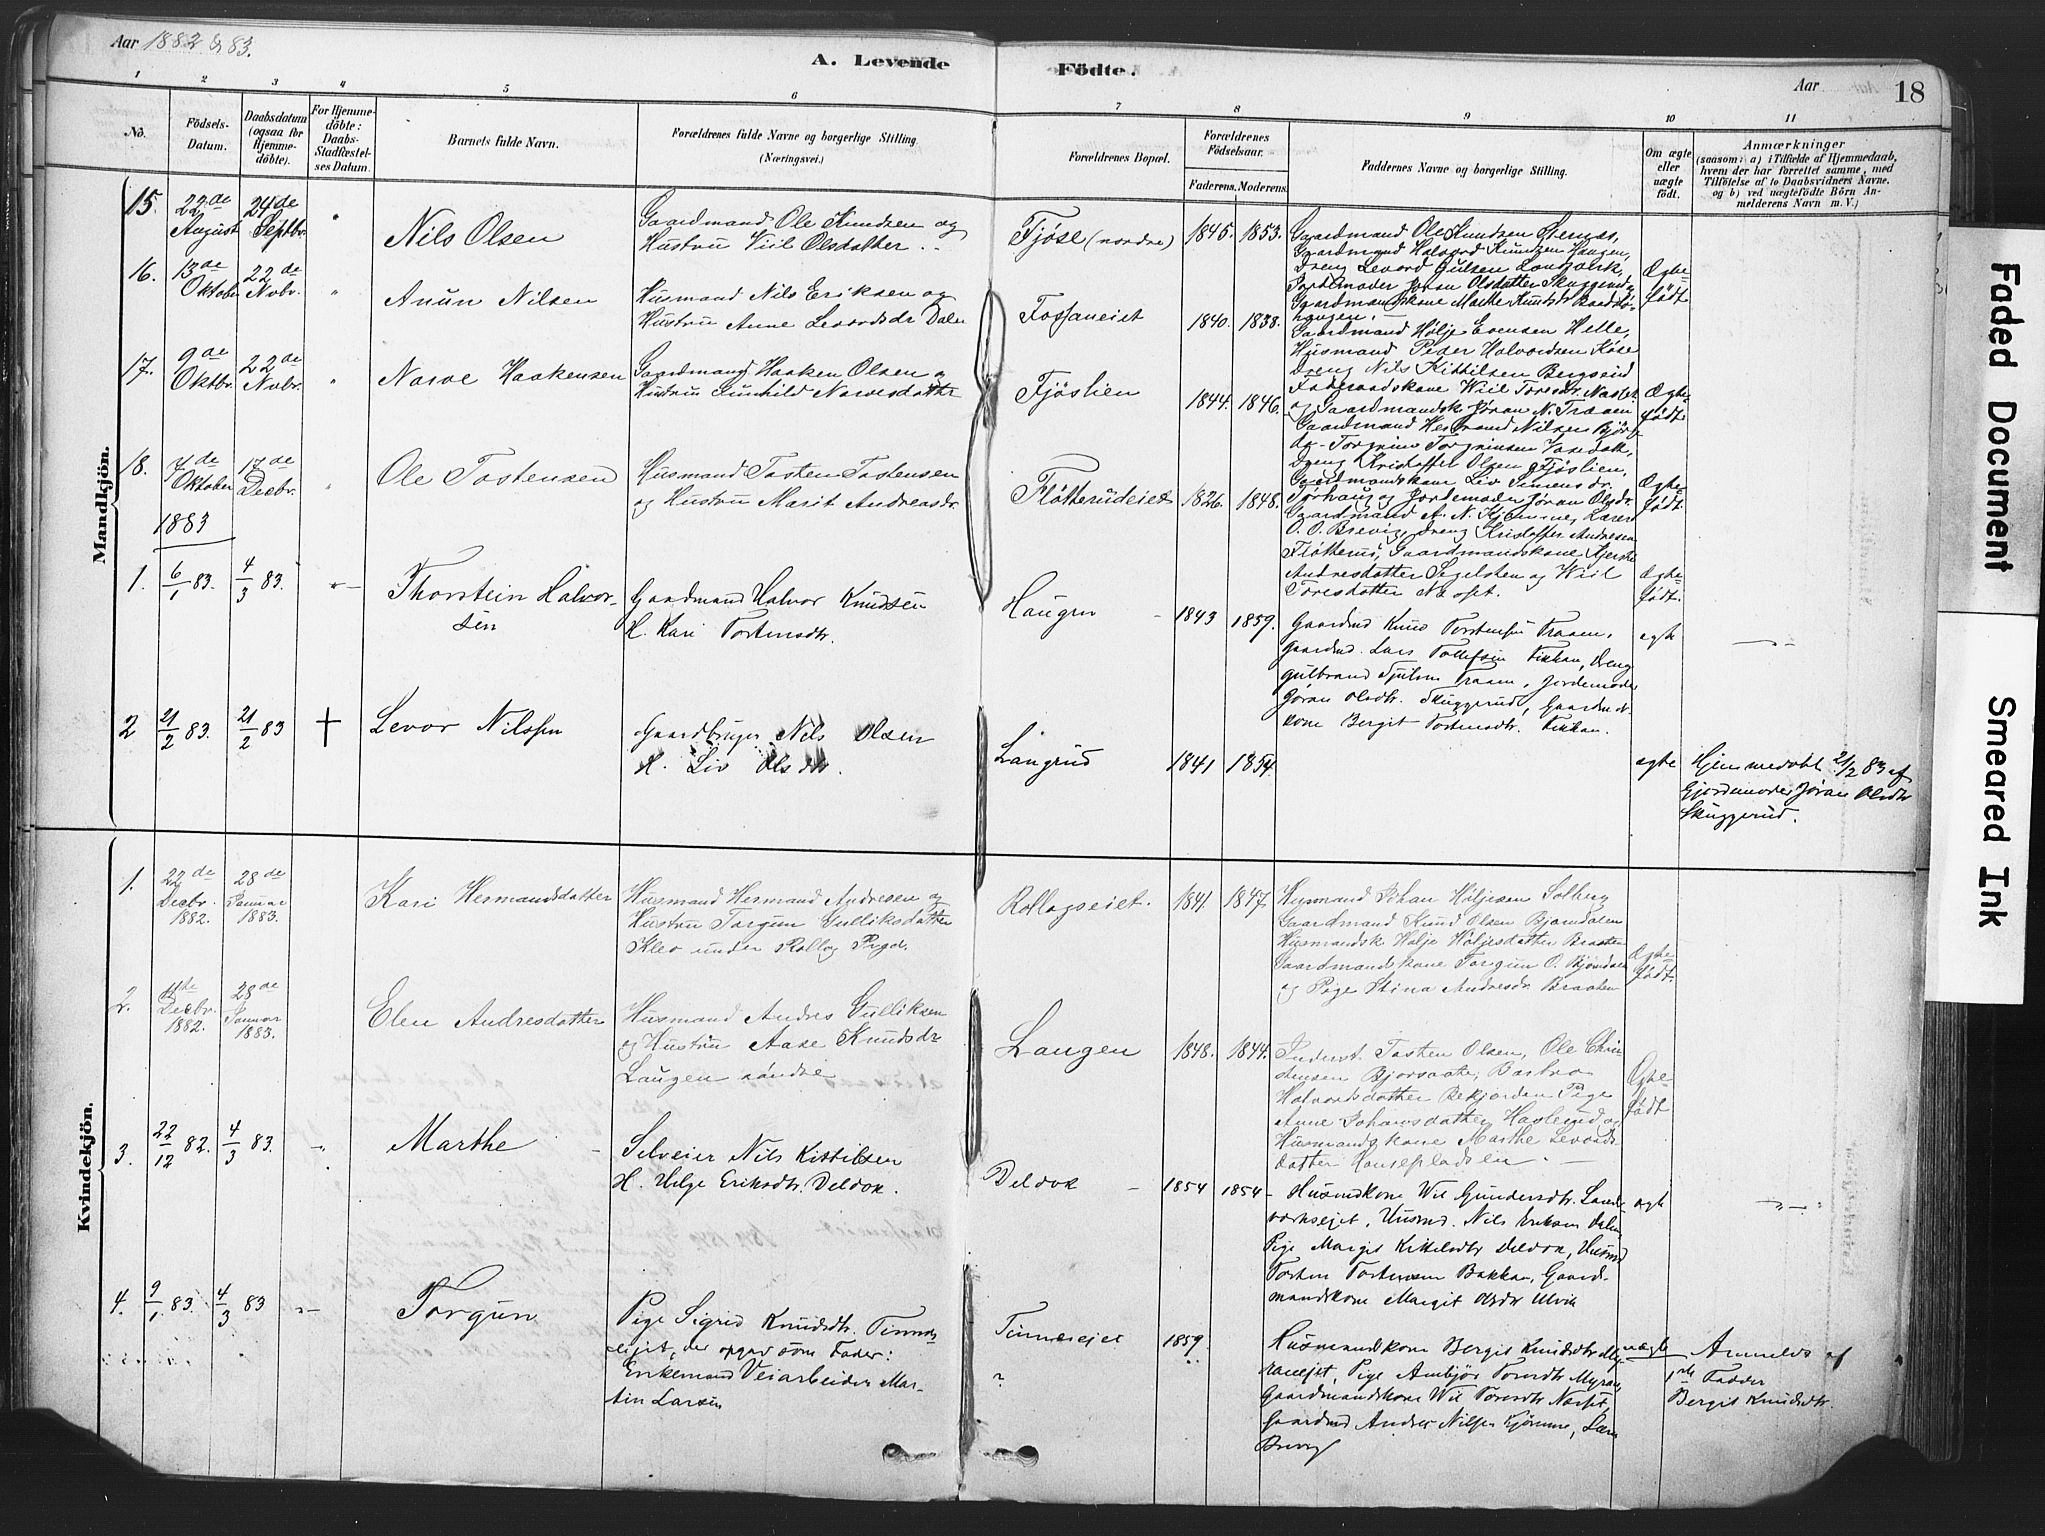 Aar 1882 & 83.
A. Levende Födte.
Aar
18
1 2 3 4 5 6 7 8 9 10 11
No.
Födsels-
Datum.
Daabsdatum
(ogsaa for
Hjemme-
döbte).
For Hjemme-
döbte:
Daabs-
Stadfæstel-
ses Datum.
Barnets fulde Navn.
Forældrenes fulde Navne og borgerlige Stilling.
(Næringsvei.)
Forældrenes Bopæl.
Forældrenes
Födselsaar.
Faderens. Moderens.
Faddernes Navne og borgerlige Stilling.
Om ægte
eller
uægte
födt.
Anmærkninger
(saasom: a) i Tilfælde af Hjemmedaab,
hvem der har forrettet samme, med
Tilföielse af to Daabsvidners Navne.
og b) ved uægtefödte Börn An-
melderens Navn m. V.)
Mandkjön.
15.
22de
August
24de
Septbr.
"
Nils Olsen
Gaardmand Ole Knudsen og
Hustru Viil Olsdatter.
Fjöse (nordre)
1845. 1853.
Gaardmand Ole Knudsen
Gaardmand Halvord Knudsen Haugen,
Dreng Levord
Jordemoder Jöran Olsdatter Skuggerud
Gaardmandskone Marthe Knudsdr
Ægte-
födt
16.
13de
Oktober
22de
Novbr.
"
Anun Nilsen
Husmand Nils Eriksen og
Hustru Anne Levordsdr Dalen
Fossaneiet
1840. 1838.
Gaardmand Hölje Evensen Helle,
Husmand Peder Halvordsen Köse
Dreng Nils Kittilsen Bergseid
Föderaadskone Viil Toresdr. Næset
og Gaardmandsk. Jöran N. Traaen
Ægte-
födt
17.
9de
Oktbr.
22de
Novbr.
"
Narve Haakensen
Gaardmand Haaken Olsen og
Hustru Gunhild Narvesdatter
Fjöslien
1844. 1846.
Gaardmand Hermand Nilsen
Dreng Kristoffer Olsen Fjöslien,
Gaardmandskone Liv Simensdr.
og Jordemoder Jöran Olsdr.
Ægte-
födt.
18.
7de
Oktober
17de
Decbr.
"
Ole Tostensen
Husmand Tosten Tostensen
og Hustru Marit Andreasdr.
Flötterudeiet
1826. 1848.
Gaardmand A. N. Kjömme, Lærer
O. O. Brevig, Dreng Kristoffer Andresen
Flötterud, Gaardmandskone Kjersti
Andresdatter Segelsten og Viil
Toresdatter Næset.
Ægte-
födt.
1883
1.
6/1 83.
4/3 83.
Thorstein Halvor-
sen
Gaardmand Halvor Knudsen
H. Kari Tostensdtr.
Haugen
1843 1859.
Gaardmd Knud Torstensen Traaen,
Gaardmd. Lars Tollefsen Fikkan, Dreng
Gulbrand Traaen, Jordemoder
Jöran Olsdtr. Skuggerud, Gaardmds-
kone Bergit Tostensdtr. Fikkan.
egte
2
21/2 83.
21/2 83
Levor Nilssen
Gaardbruger Nils Olsen
H. Liv Olsdtr.
Langrud
1841 1854.
ægte
Hjemmedöbt 21/2 83 af
Gjordemoder Jöran Olsdtr
Skuggerud.
Kvindekjön.
1.
22de
Decbr.
1882.
28de
Januar
1883.
Kari Hermandsdatter
Husmand Hermand Andresen og
Hustru Torgun Gulliksdatter
Klev under Rollag Prgd.
Rollagseiet.
1841. 1847.
Husmand Johan Höljesen Solberg
Gaardmand Knud Olsen Bjöndalen
Husmandsk. Helje Höljesdatter Braaten
Gaardmandskone Torgun O. Bjöndalen
og Pige Stina Andresdr. Braaten
Ægte-
födt.
2.
11te
Decbr.
1882.
28de
Januar
1883.
Elen Andresdatter
Husmand Andres Gulliksen
og Hustru Aase Knudsdr
Laugen söndre
Laugen
1848. 1844.
Inderst Tosten Olsen, Ole Chri-
stensen Bjorsaate, Barbro
Halvordsdatter Pige
Anne Johansdatter Haslerud og
Husmandskone Marthe Levords-
datter
Ægte-
födt
3.
22/12 82.
4/3 83.
Marthe
Selveier Nils Kittilsen
H. Helge Eriksdtr. Deldok.
Deldok
1854 1854
Husmdkone Viil Gundersdtr.
Husmd. Nils Eriksen Dalen
Pige Margit Kittelsdtr Deldok, Husmd
Torsten Torstensen Bakkan, Gaard-
mandskone Margit Olsdtr Ulvik
egte
4.
9/1 83.
4/3 83
Torgun
Pige Sigrid Knudsdtr. Tinnes-
eijet, der opgav som Fader:
Enkemand Veiarbeider Mar-
tin Larsen
Tinneseiet
?
1859.
Husmandkone Bergit Knudsdtr My-
raneiet, Pige Ambjör Toresdtr Myran,
Gaardmandskone Viil Toresdtr Næset,
Gaardmd Andres Nilsen Kjömme, Lærer
Brevig
uægte
Anmeldt af
1ste Fadder
Bergit Knudsdtr.
Faded Document
Smeared Ink